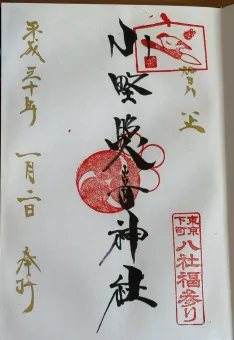 東京
下町
八社福参り
小野照崎神社
平成三十年
一月二日